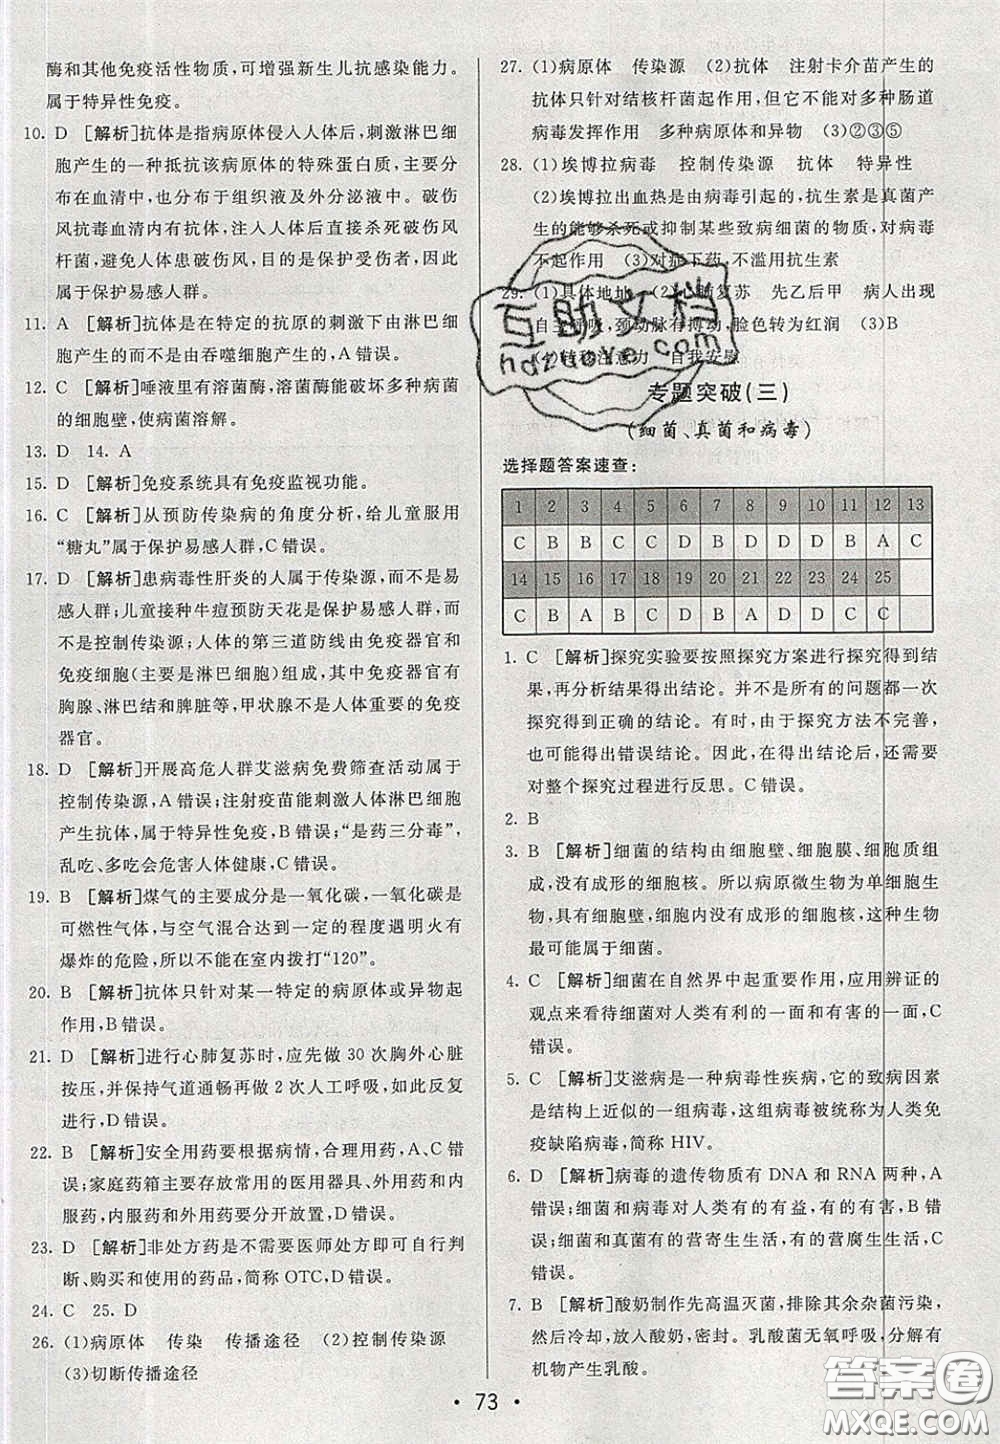 酶和其他免疫活性物质,可增强新生儿抗感染能力。
属于特异性免疫。
10. D [解析]抗体是指病原体侵入人体后,刺激淋巴细
胞产生的一种抵抗该病原体的特殊蛋白质,主要分
布在血清中,也分布于组织液及外分泌液中。破伤
风抗毒血清内有抗体,注入人体后直接杀死破伤风
杆菌,避免人体患破伤风,目的是保护受伤者,因此
属于保护易感人群。
11. A [解析]抗体是在特定的抗原的刺激下由淋巴细
胞产生的而不是由吞噬细胞产生的,A错误。
12. C [解析]唾液里有溶菌酶,溶菌酶能破坏多种病菌
的细胞壁,使病菌溶解。
13. D 14. A
15. D [解析]免疫系统具有免疫监视功能。
16. C [解析]从预防传染病的角度分析,给儿童服用
“糖丸”属于保护易感人群,C错误。
17. D [解析]患病毒性肝炎的人属于传染源,而不是易
感人群;儿童接种牛痘预防天花是保护易感人群,而
不是控制传染源;人体的第三道防线由免疫器官和
免疫细胞(主要是淋巴细胞)组成,其中免疫器官有
胸腺、淋巴结和脾脏等,甲状腺不是人体重要的免疫
器官。
18. D [解析]开展高危人群艾滋病免费筛查活动属于
控制传染源,A错误;注射疫苗能刺激人体淋巴细胞
产生抗体,属于特异性免疫,B错误;“是药三分毒”,
乱吃、多吃会危害人体健康,C错误。
19. B [解析]煤气的主要成分是一氧化碳,一氧化碳是
可燃性气体,与空气混合达到一定的程度遇明火有
爆炸的危险,所以不能在室内拨打“120”。
20. B [解析]抗体只针对某一特定的病原体或异物起
作用,B错误。
21. D [解析]进行心肺复苏时,应先做30次胸外心脏
按压,并保持气道通畅再做2次人工呼吸,如此反复
进行,D错误。
22. B [解析]安全用药要根据病情,合理用药,A、C错
误;家庭药箱主要存放常用的医用器具、外用药和内
服药,内服药和外用药要分开放置,D错误。
23. D [解析]非处方药是不需要医师处方即可自行判
断、购买和使用的药品,简称OTC,D错误。
24. C 25. D
26. (1)病原体 传染 传播途径 (2)控制传染源
(3)切断传播途径
27. (1)病原体 传染源 (2)抗体 注射卡介苗产生的
抗体只针对结核杆菌起作用,但它不能对多种肠道
病毒发挥作用 多种病原体和异物 (3)②③⑤
28. (1)埃博拉病毒 控制传染源 抗体 特异性
(2)埃博拉出血热是由病毒引起的,抗生素是真菌产
生的能够杀死或抑制某些致病细菌的物质,对病毒
不起作用 (3)对症下药,不滥用抗生素
29. (1)具体地址 (2)心肺复苏 先乙后甲 病人出现
自主呼吸,颈动脉有搏动,脸色转为红润 (3)B
(4)转移注意力 自我安慰
互助文档
hdzuoye.com
专题突破(三)
(细菌、真菌和病毒)
选择题答案速查:
1 2 3 4 5 6 7 8 9 10 11 12 13
C B B C C D B D D D B A C
14 15 16 17 18 19 20 21 22 23 24 25
C B A C B D D A D C C C
1. C [解析]探究实验要按照探究方案进行探究得到结
果,再分析结果得出结论。并不是所有的问题都一次
探究得到正确的结论。有时,由于探究方法不完善,
也可能得出错误结论。因此,在得出结论后,还需要
对整个探究过程进行反思。C错误。
2. B
3. B [解析]细菌的结构由细胞壁、细胞膜、细胞质组
成,没有成形的细胞核。所以病原微生物为单细胞生
物,具有细胞壁,细胞内没有成形的细胞核,这种生物
最可能属于细菌。
4. C [解析]细菌在自然界中起重要作用,应用辨证的
观点来看待细菌对人类有利的一面和有害的一面,C
错误。
5. C [解析]艾滋病是一种病毒性疾病,它的致病因素
是结构上近似的一组病毒,这组病毒被称为人类免
疫缺陷病毒,简称HIV。
6. D [解析]病毒的遗传物质有DNA和RNA两种,A
错误;细菌和病毒对人类有的有益,有的有害,B、C
错误;细菌和真菌有的营寄生生活,有的营腐生生活,
D正确。
7. B [解析]酸奶制作先高温灭菌,排除其余杂菌污染,
然后冷却,放入酸奶,密封。乳酸菌无氧呼吸,分解有
机物产生乳酸。
• 73 •
答案圈
MXQE.COM